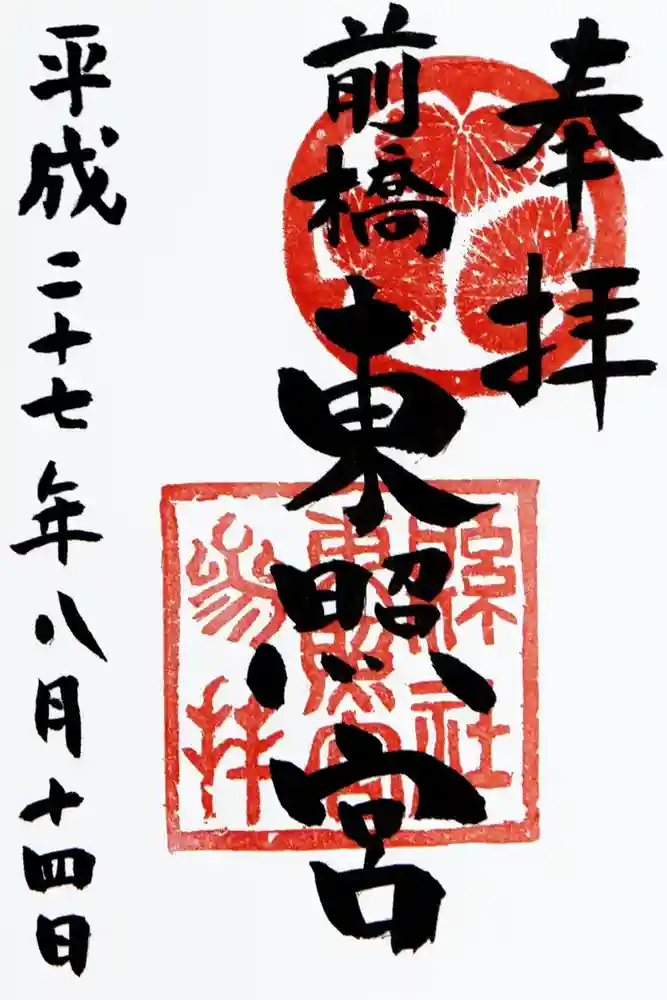 奉拝
前橋東照宮
平成二十七年八月十四日
縣社
東照宮
参拝